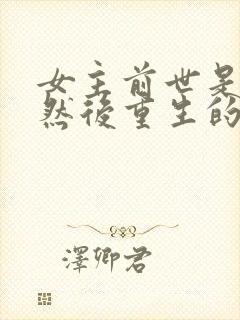 女主前世是
然後重生的
澤卿君